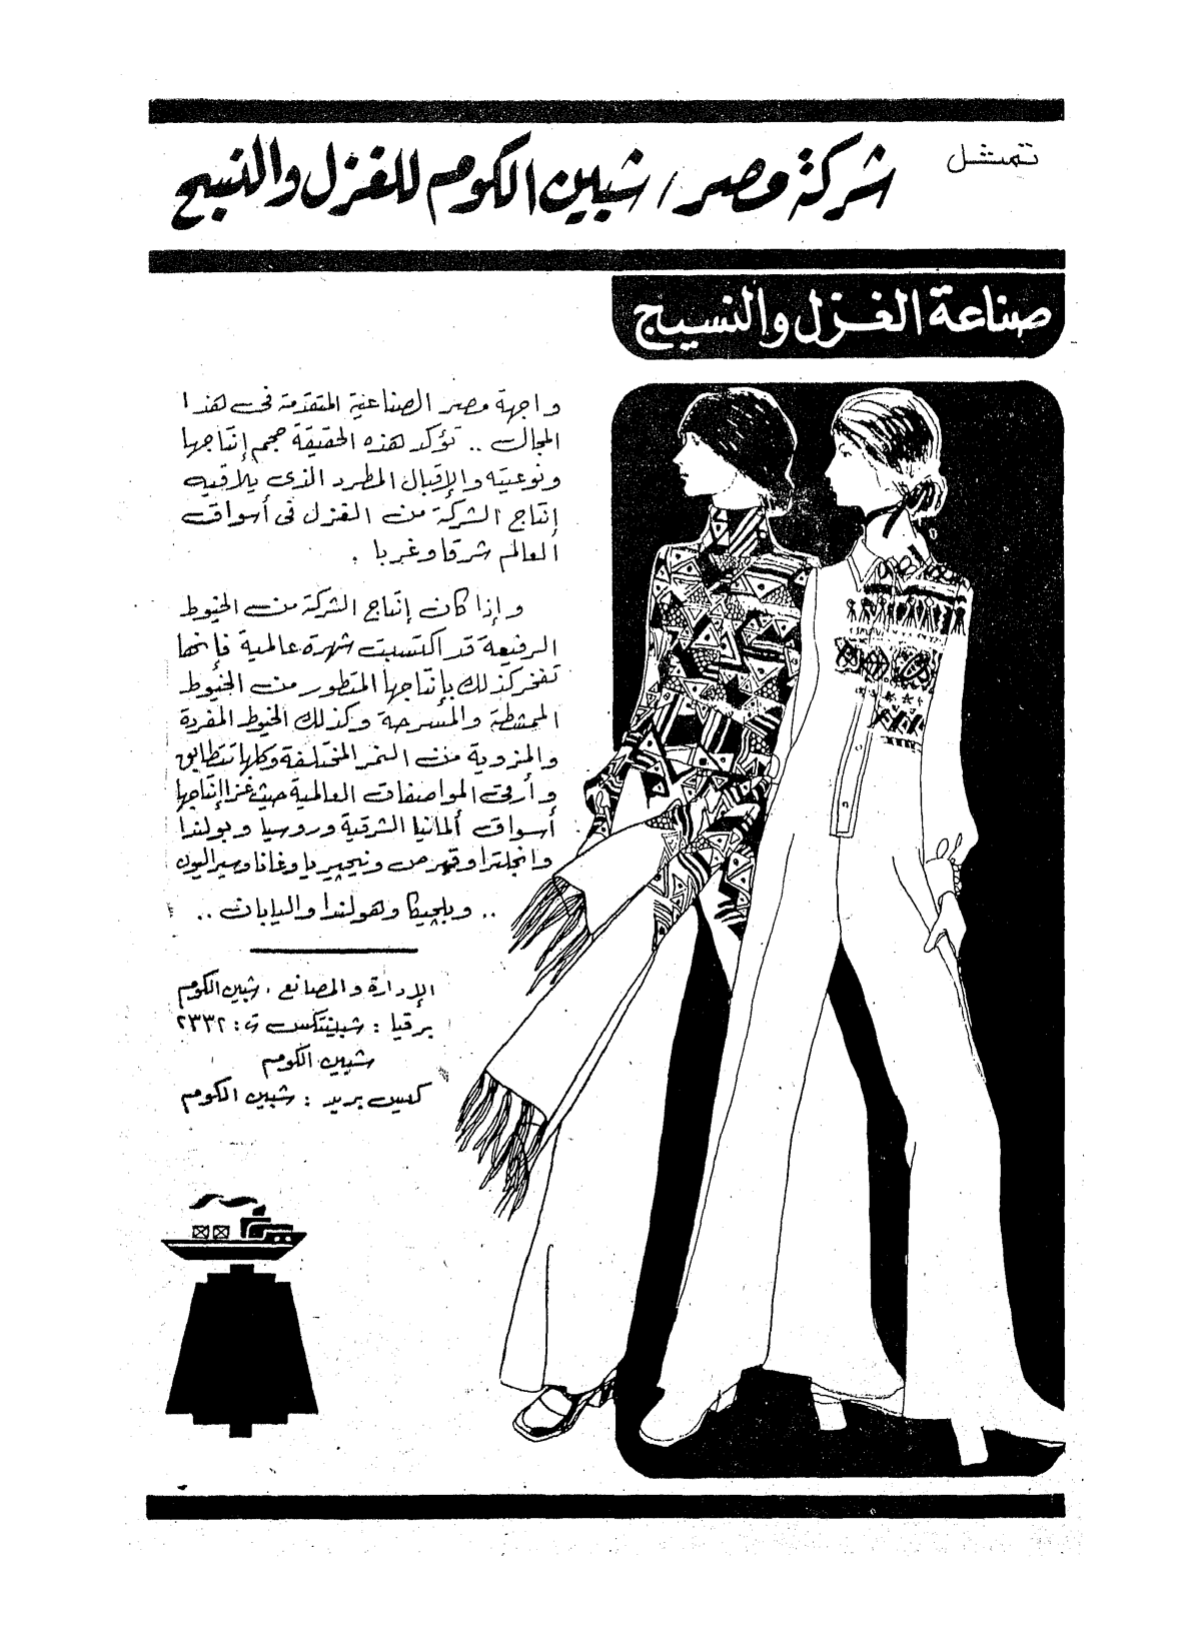 تمثل
شركة مصر / شبين الكوم للغزل والنسيج
صناعة الغزل والنسيج
واجهة مصر الصناعية المتقدمة فى هذا
المجال .. تؤكد هذه الحقيقة حجم إنتاجها
ونوعيته والإقبال المطرد الذى يلاقيه
إنتاج الشركة من الغزل فى أسواق
العالم شرقا وغربا .
وإذا كان إنتاج الشركة من الخيوط
الرفيعة قد اكتسبت شهرة عالمية فإنها
تفخر كذلك بإنتاجها المتطور من الخيوط
الممشطة والمسرحة وكذلك الخيوط المفردة
والمزوية من النمر المختلفة وكلها تتطابق
وأرقى المواصفات العالمية حيث غزا إنتاجها
أسواق ألمانيا الشرقية وروسيا وبولندا
وانجلترا وقبرص ونيجيريا وغانا وسيراليون
.. وبلجيكا وهولندا واليابان ..
الإدارة والمصانع : شبين الكوم
برقيا : شبينتكس ت : ٢٣٣٢
شبين الكوم
كيس بريد : شبين الكوم